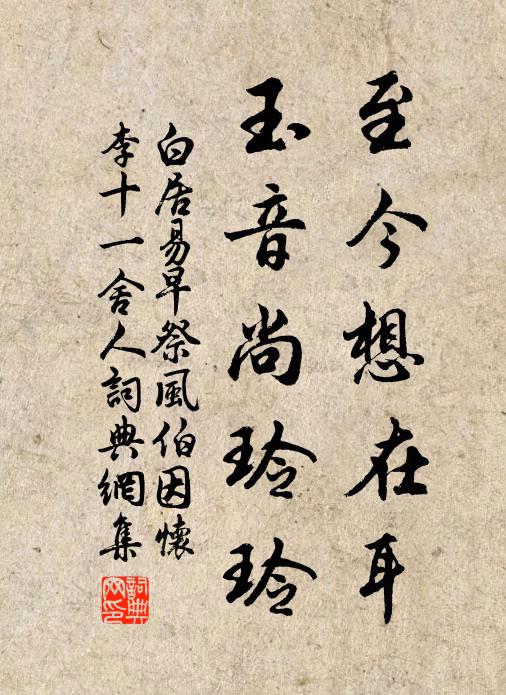 至今想在耳
玉音尚玲玲
白居易早祭風伯因懷
李十一舍人詞典網集
詞典
网印